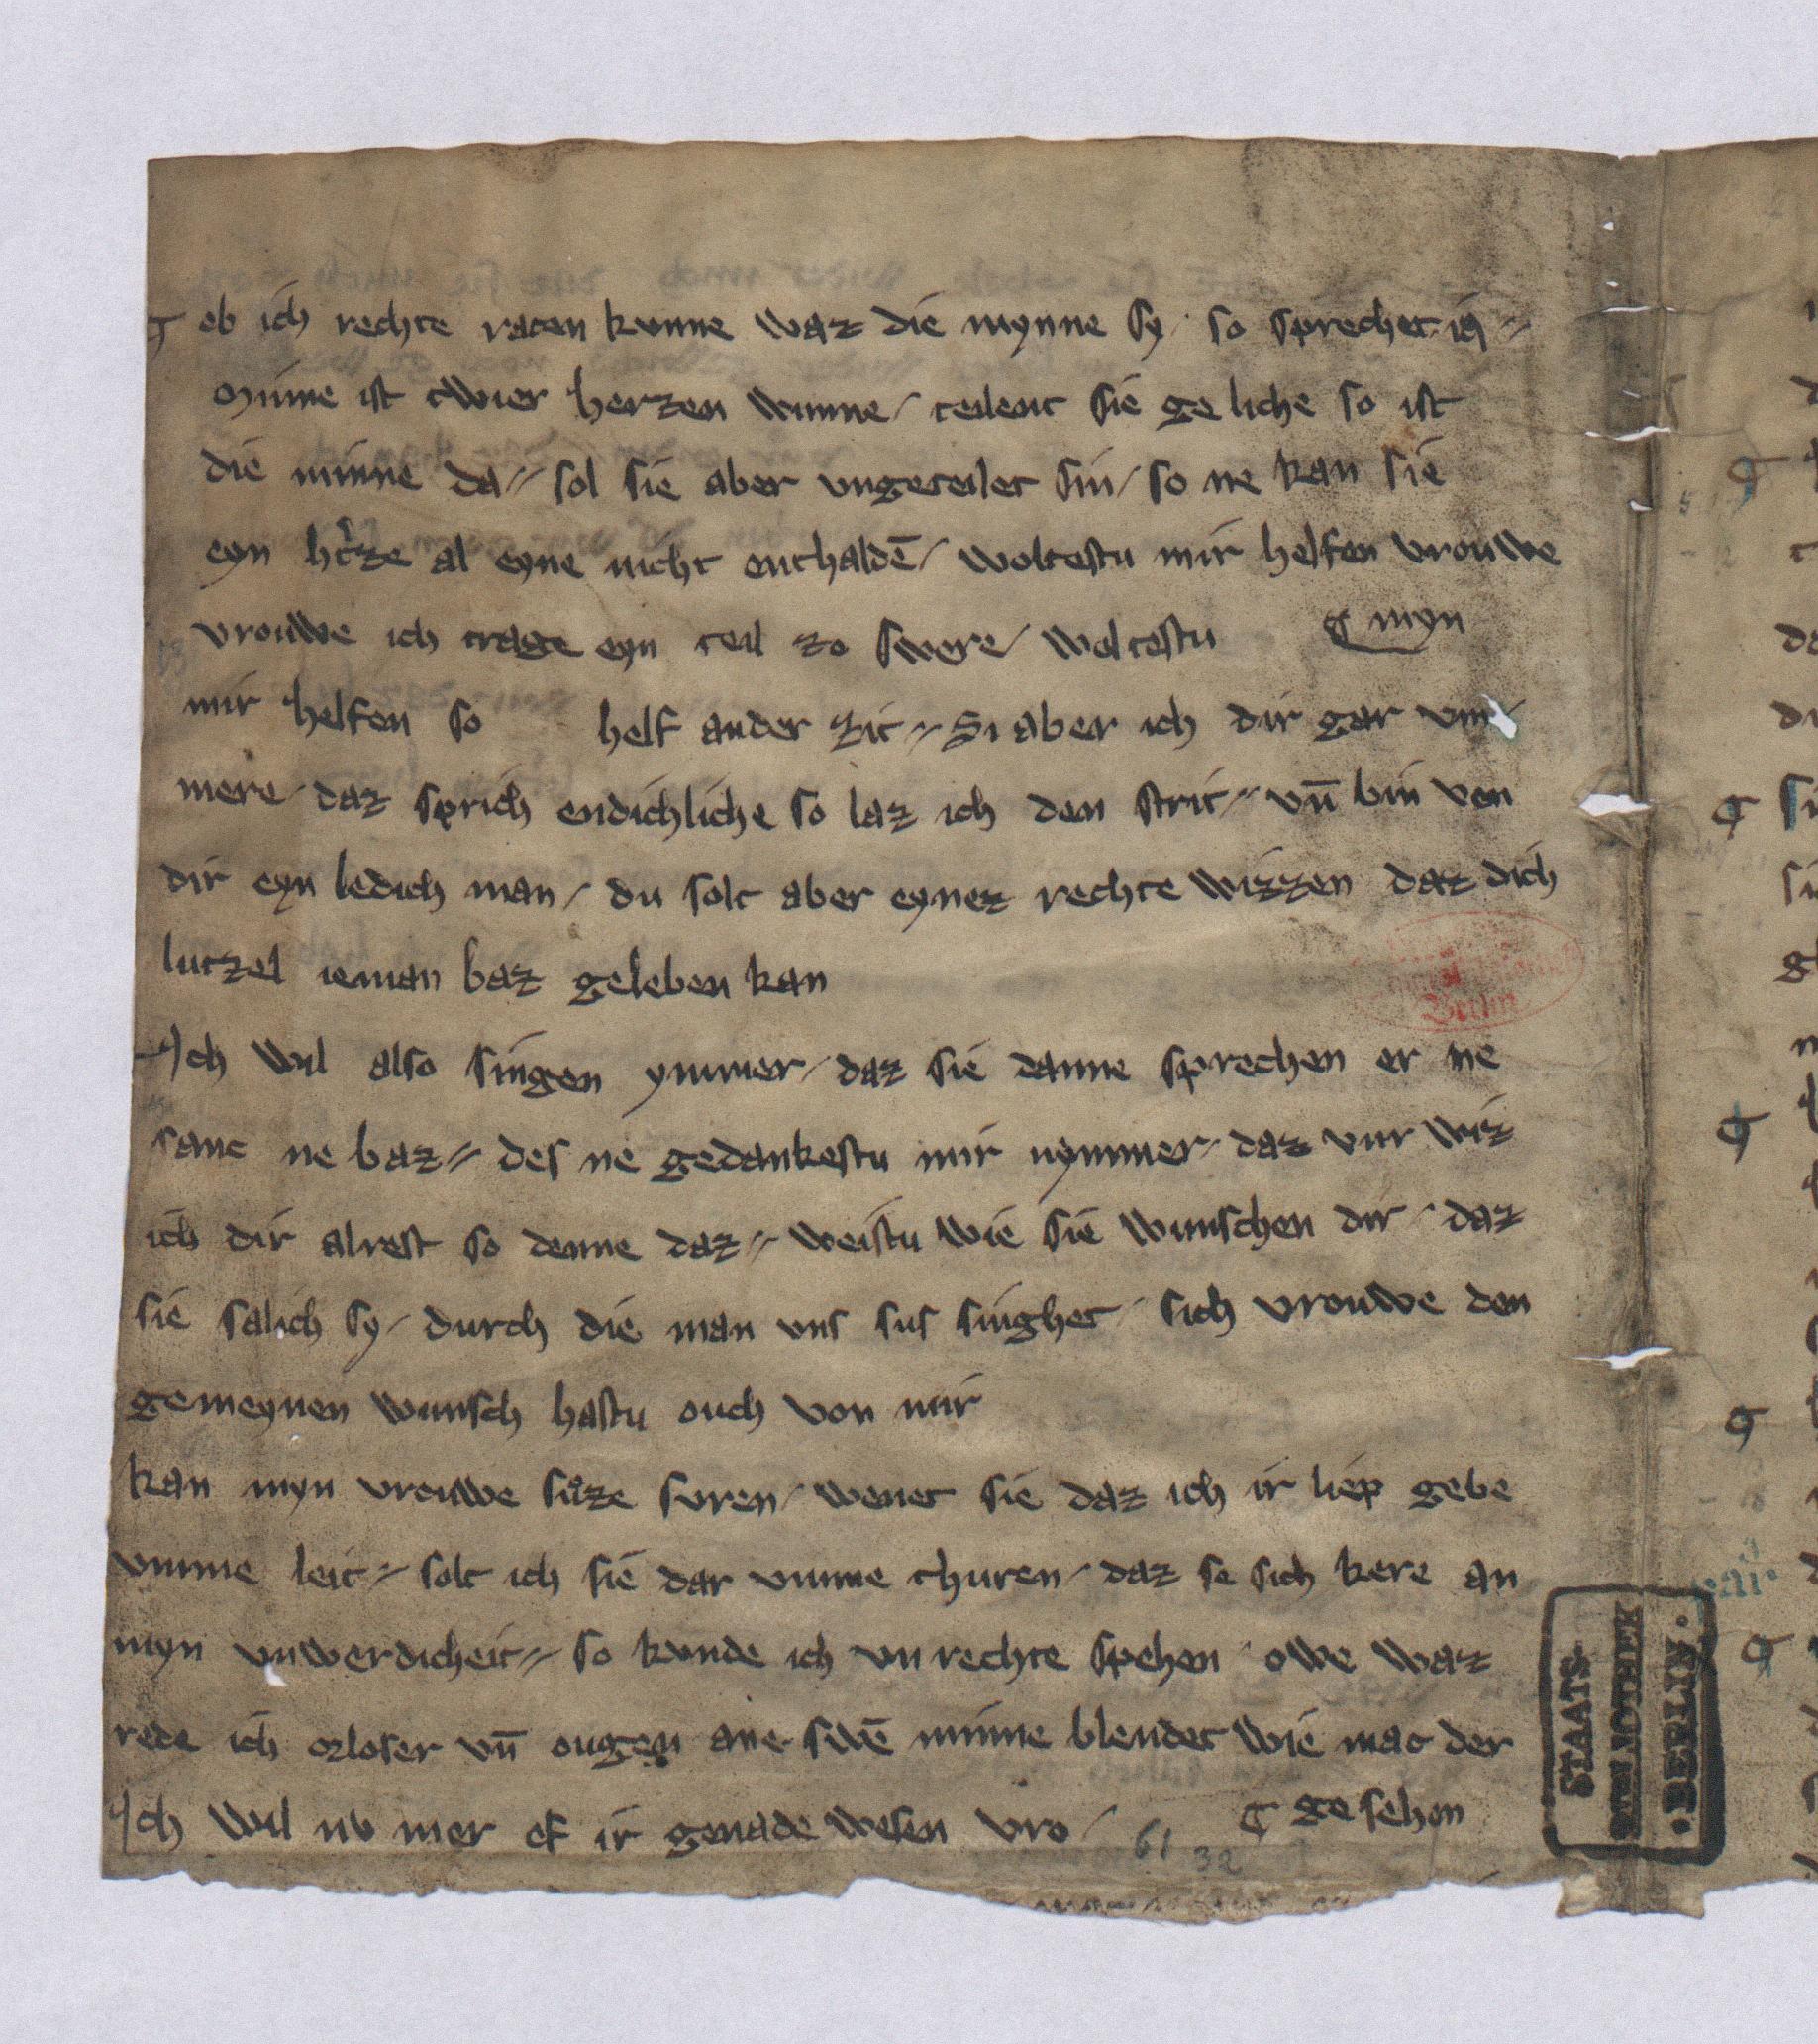 ¶ eb ich rechte raten kunne waz die mynne sy / so sprechet ia //
Minne ist twier herzen wunne / teilent sie ge liche so ist
die minne da // sol sie aber vngeteilet sin / so ne kan sie
eyn h'tze al eyne nicht enthaldē / woltestu mir helfen vrouwe
vrouwe ich trage eyn teil zo swere / woltestu ¶ myn
mir helfen so helf ander zit // Si aber ich dir gar vm
mere / daz sprich endichliche so laz ich den strit // vn̄ bin von
dir eyn ledich man / du solt aber eynez rechte wizzen daz dich
lutzel ieman baz geleben kan
Ich wil also singen ymmer / daz sie danne sprechen er ne
sanc ne baz // des ne gedankestu mir nymmer / daz vur wiz
ich dir alrest so denne daz // weistu wie sie wunschen dir / daz
sie salich sy / durch die man vns sus singhet / sich vrouwe den
gemeynen wunsch hastu ouch von mir
kan myn vrouwe suͦze suren / wenet sie daz ich ir liep gebe
vmme leit // solt ich sie dar vmme thuren / daz se sich kere an
myn vnwerdicheit // so kunde ich vn rechte spehen / owe waz
rede ich orloser vn̄ ougen ane swē minne blendet wie mac der
Ich wil nv mer ef ir genade wesen vro / ¶ ge sehen
61 32
STAATS
BIBLIOTHEK
. BERLIN .
Berlin